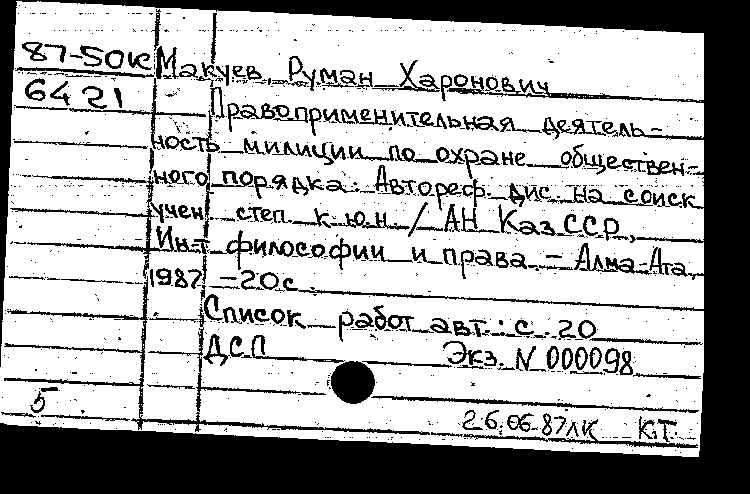 87-50к Макуев, Руман Харонович
6421 Правоприменительная деятель-
ность милиции по охране обществен-
ного порядка: Автореф. дис. на соиск
учен. степ. к.ю.н. / АН Каз.ССР,
Ин-т философии и права. – Алма-Ата,
1987. – 20с.
Список работ авт.: с. 20
ДСП Экз. N 000098
5 26.06.87лк К.Т.